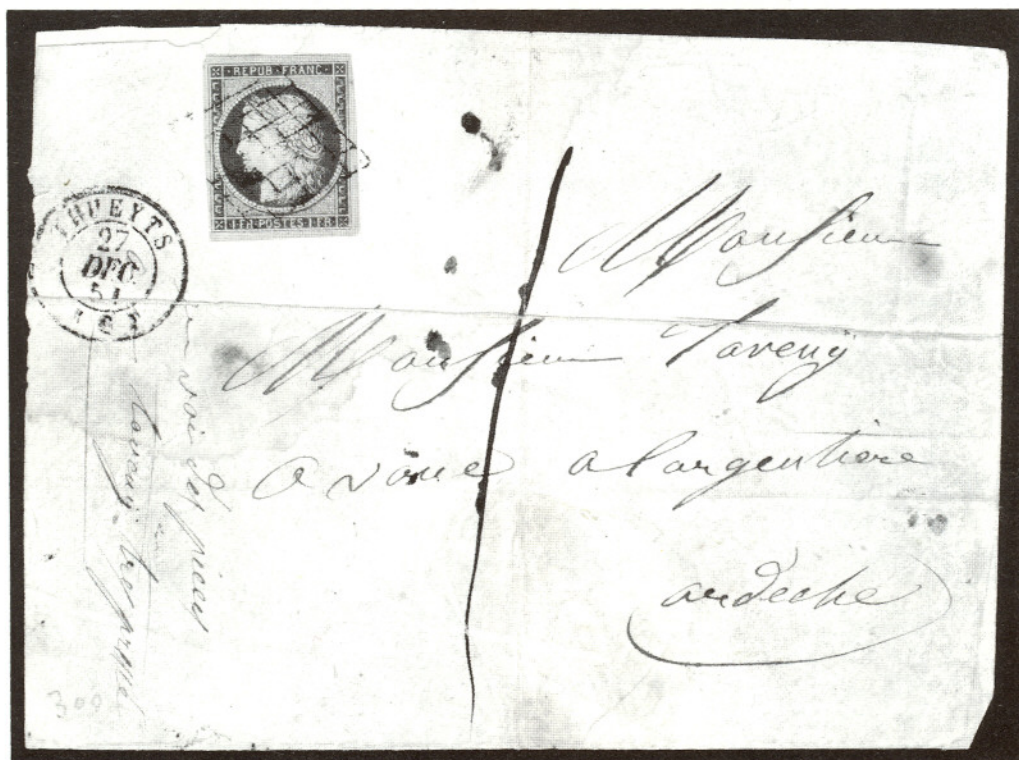 REPUB. FRANC.
1 FR. POSTES 1 FR.
THUEYTS
27
DEC
51
Monsieur
Monsieur Taveny
avoué a largentiere
ardeche
300